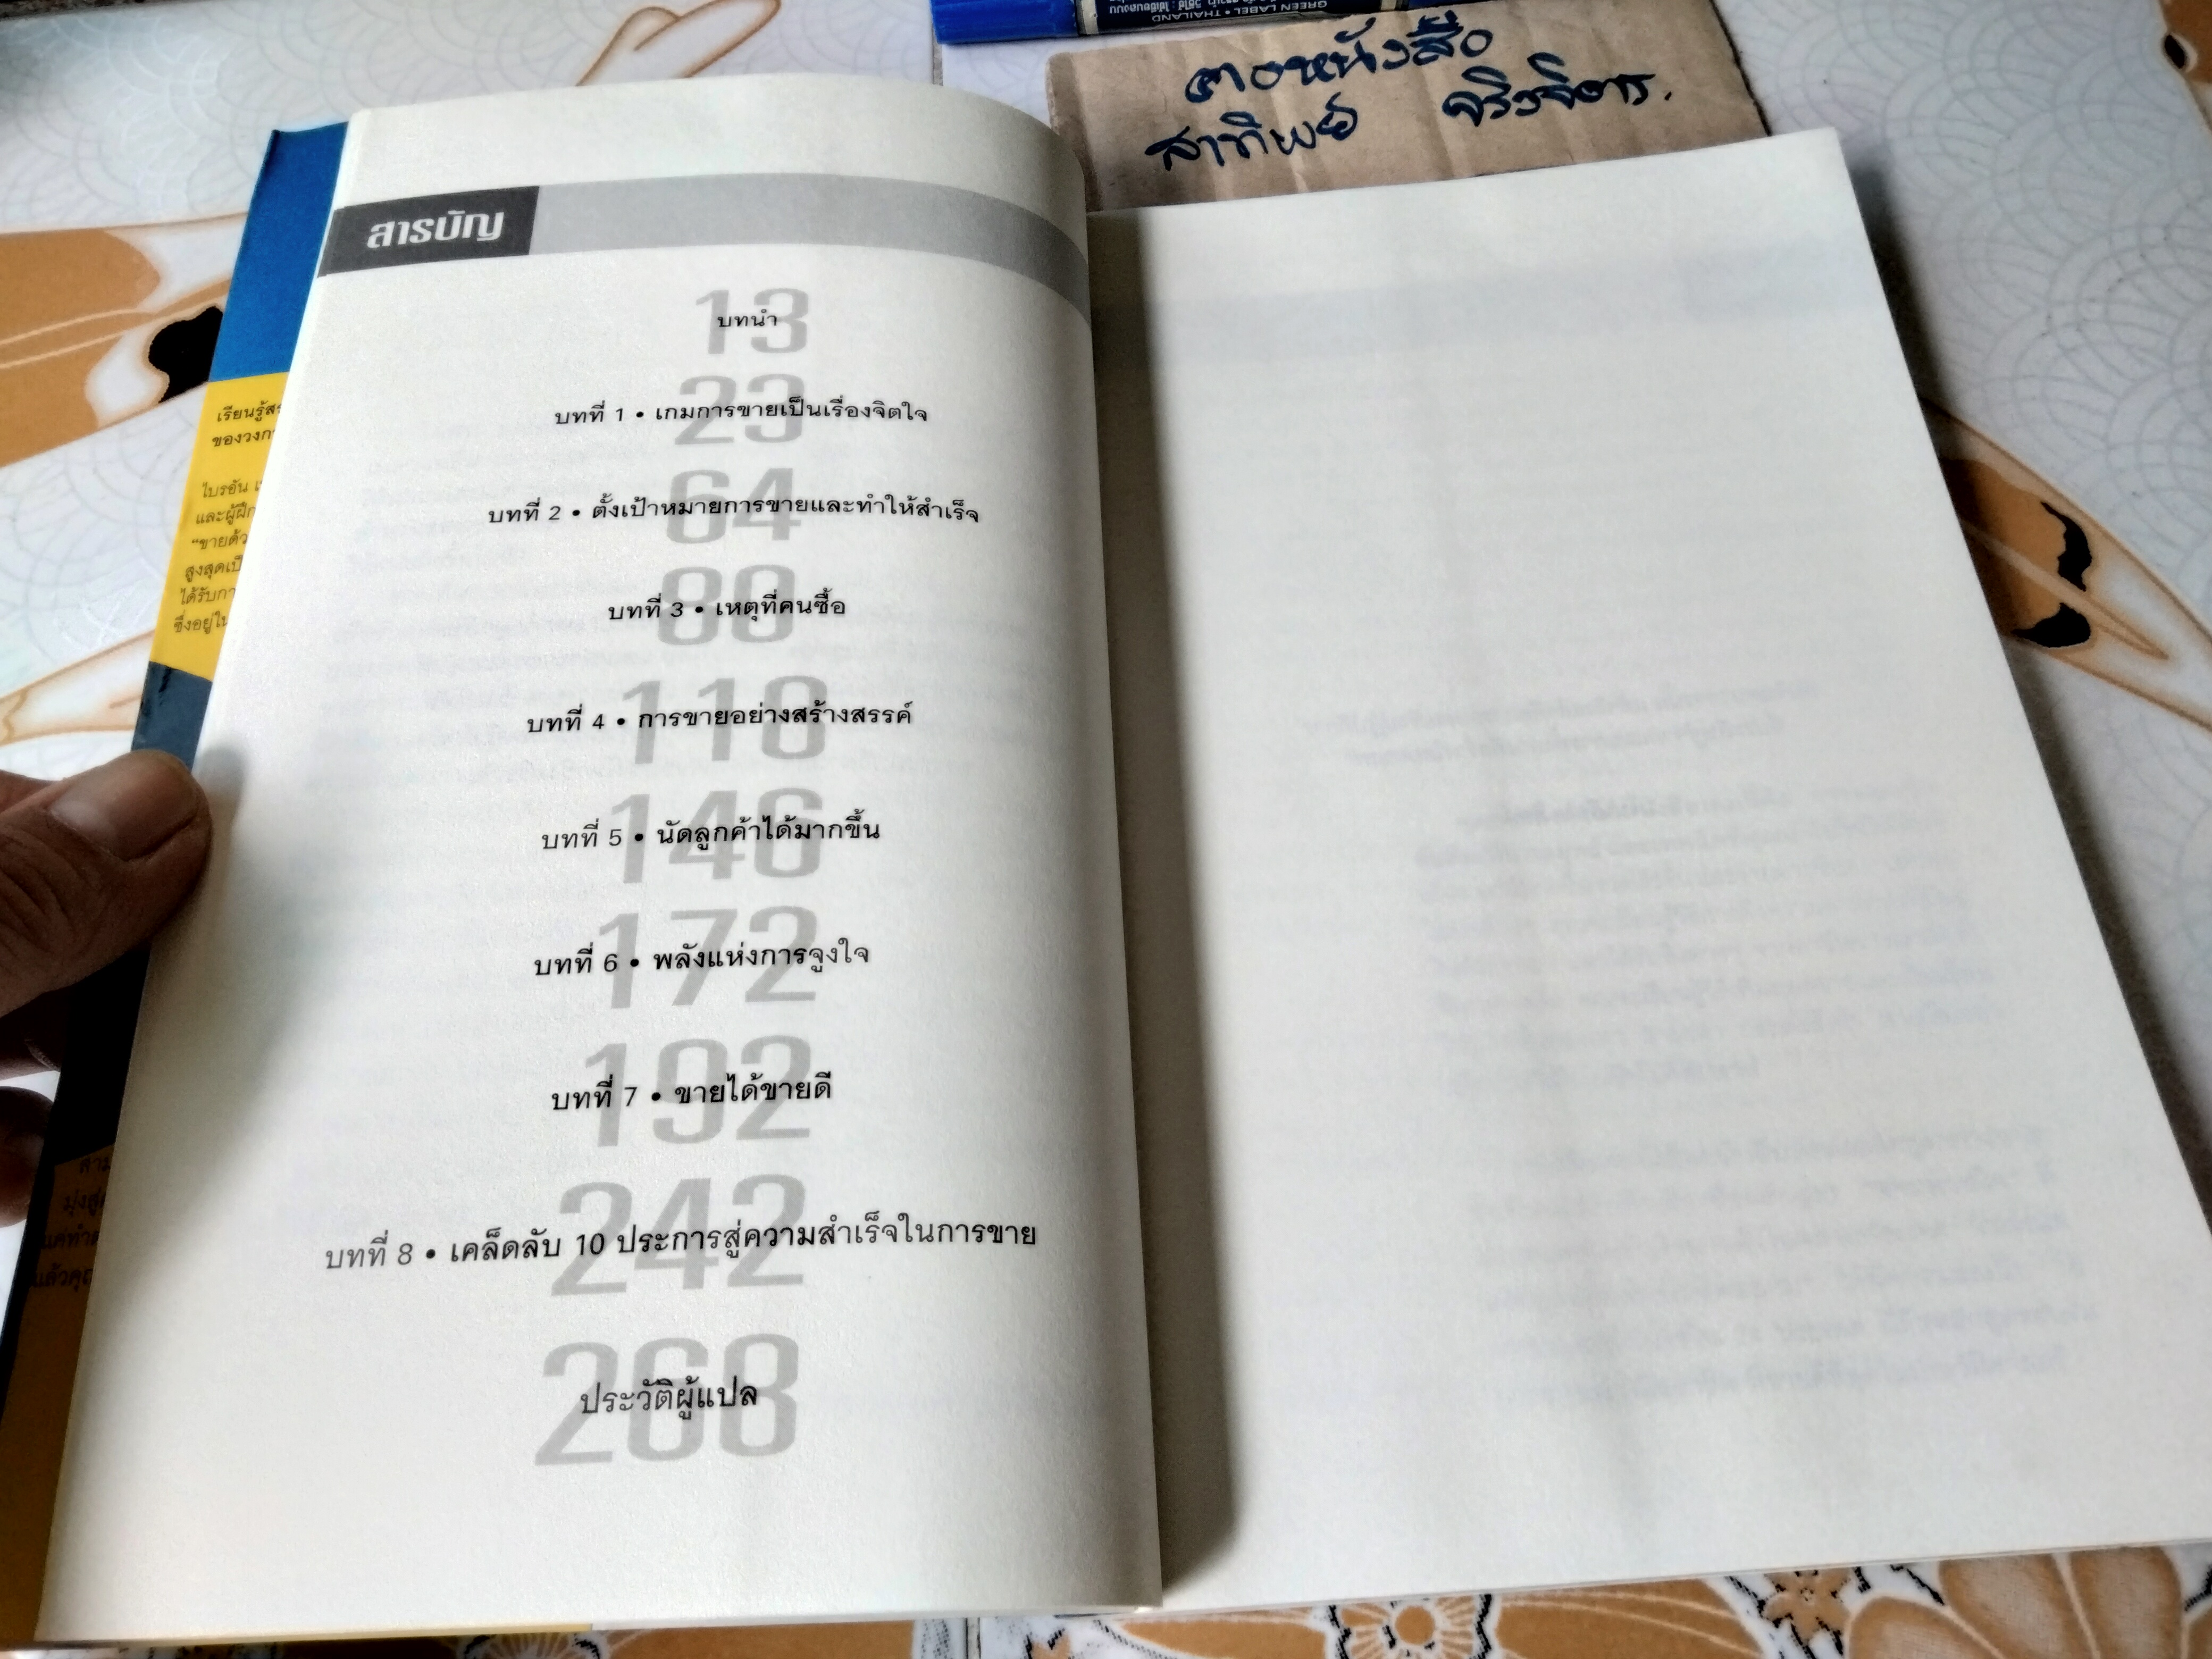 GREEN LABEL • THAILAND
สารบัญ
13
บทนำ
23
บทที่ 1 • เกมการขายเป็นเรื่องจิตใจ
64
บทที่ 2 • ตั้งเป้าหมายการขายและทำให้สำเร็จ
88
บทที่ 3 • เหตุที่คนซื้อ
118
บทที่ 4 • การขายอย่างสร้างสรรค์
146
บทที่ 5 • นัดลูกค้าได้มากขึ้น
172
บทที่ 6 • พลังแห่งการจูงใจ
192
บทที่ 7 • ขายได้ขายดี
242
บทที่ 8 • เคล็ดลับ 10 ประการสู่ความสำเร็จในการขาย
268
ประวัติผู้แปล
เรียนรู้
ของ
ไบรอัน
และผู้ฝึก
"ขายด้ว
สูงสุดเป็
ได้รับกา
ซึ่งอยู่ใน